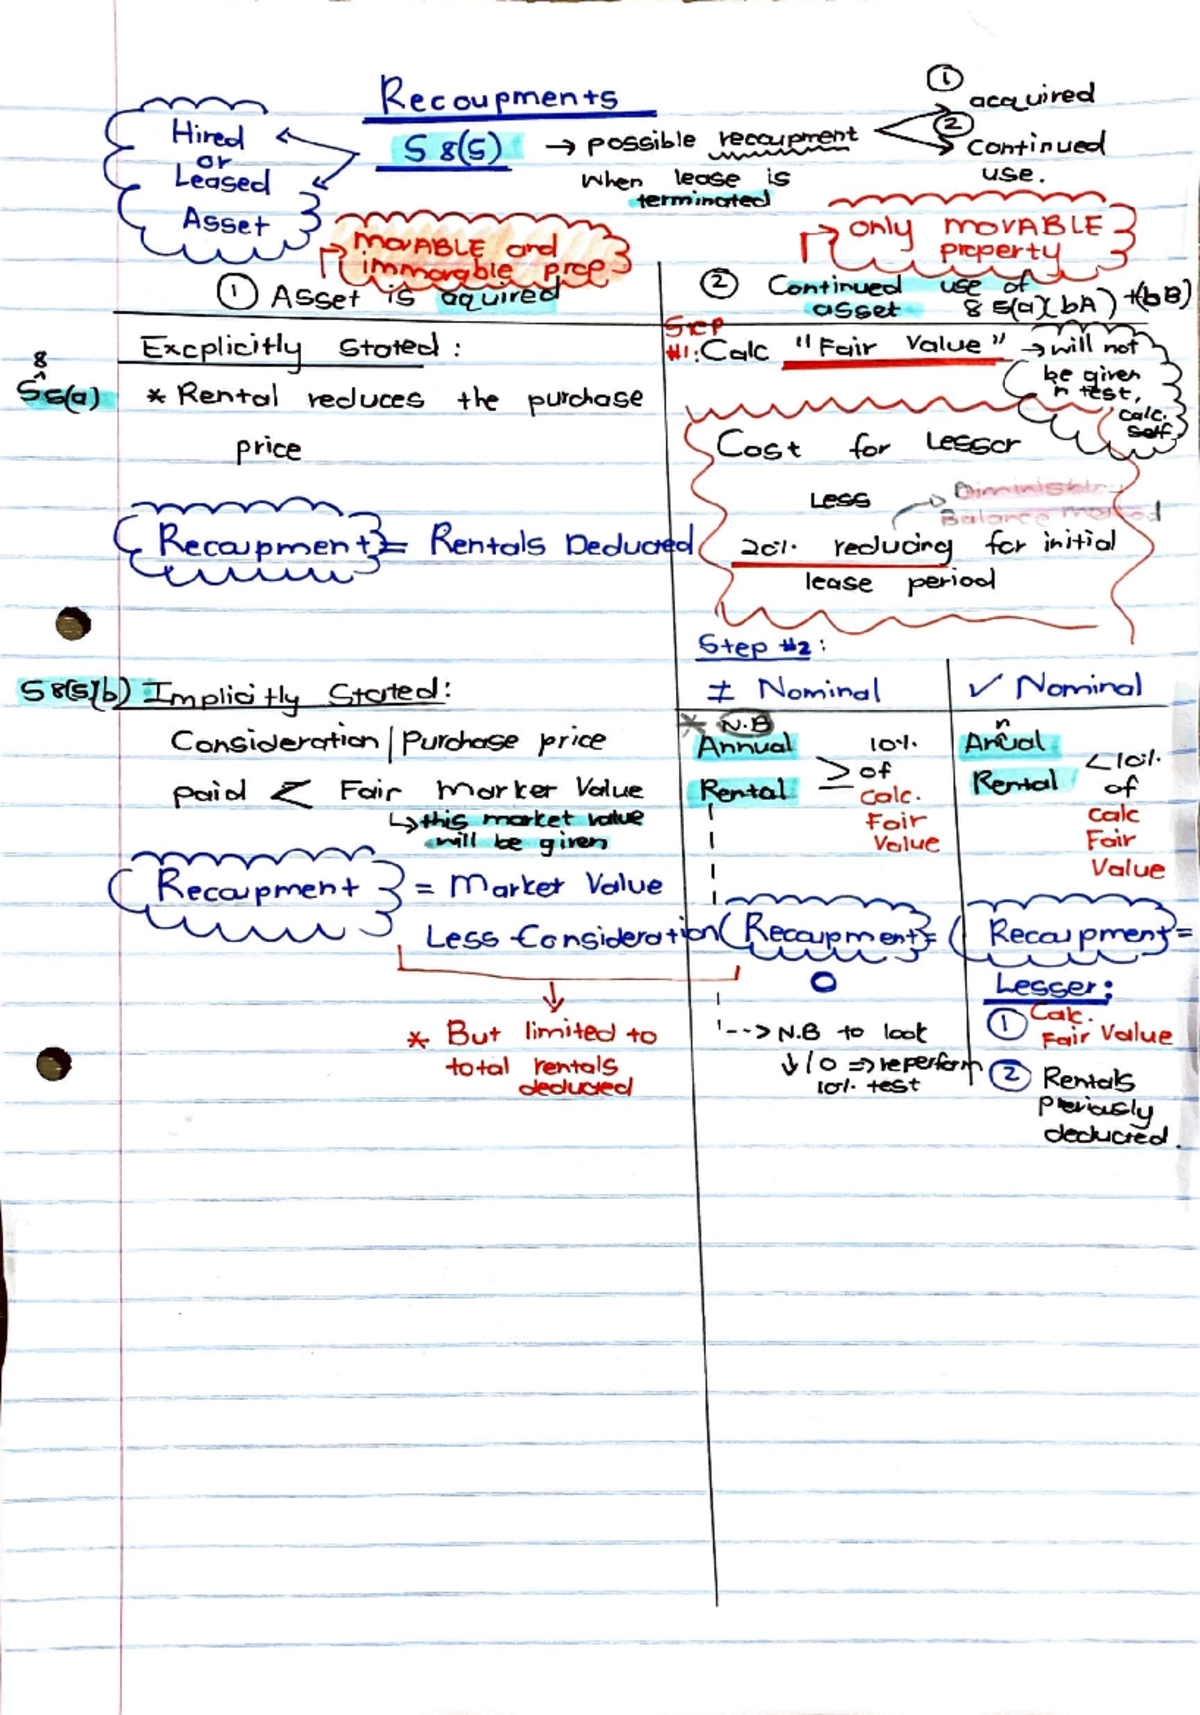 Recoupments
Hired
or
Leased
Asset
S 8(5) → possible recoupment
when lease is
terminated
① acquired
② continued
use.
MOVABLE and
immovable prop
① Asset is aquired
only MOVABLE
property
② Continued use of
asset 8 5(a)(bA) +(bB)
Excplicitly Stated :
8
S5(a) * Rental reduces the purchase
price
Recoupment = Rentals Deducted
Step
#1: Calc "Fair Value" → will not
be given
n test,
calc.
self
Cost for Lessor
Less → Diminishing
Balance Method
20% reducing for initial
lease period
S 8(5)(b) Implicitly Stated:
Consideration/Purchase price
paid < Fair Market Value
↳ this market value
will be given
Recoupment = Market Value
Less Consideration
* But limited to
total rentals
deducted
Step #2:
≠ Nominal
* N.B
Annual
Rental
≥ 10%
of
Calc.
Fair
Value
Recoupment =
0
--> N.B to look
↓/0 => reperform
10% test
✓ Nominal
Anual
n
Rental
<10%
of
Calc
Fair
Value
Recoupment =
Lesser:
① Calc.
Fair Value
② Rentals
previously
deducted.